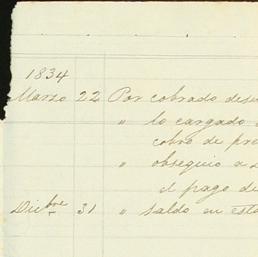 1834
Marzo 22 Por cobrado
" lo cargado
cobro de
" obsequio a
el pago de
Dicbre 31 " saldo en